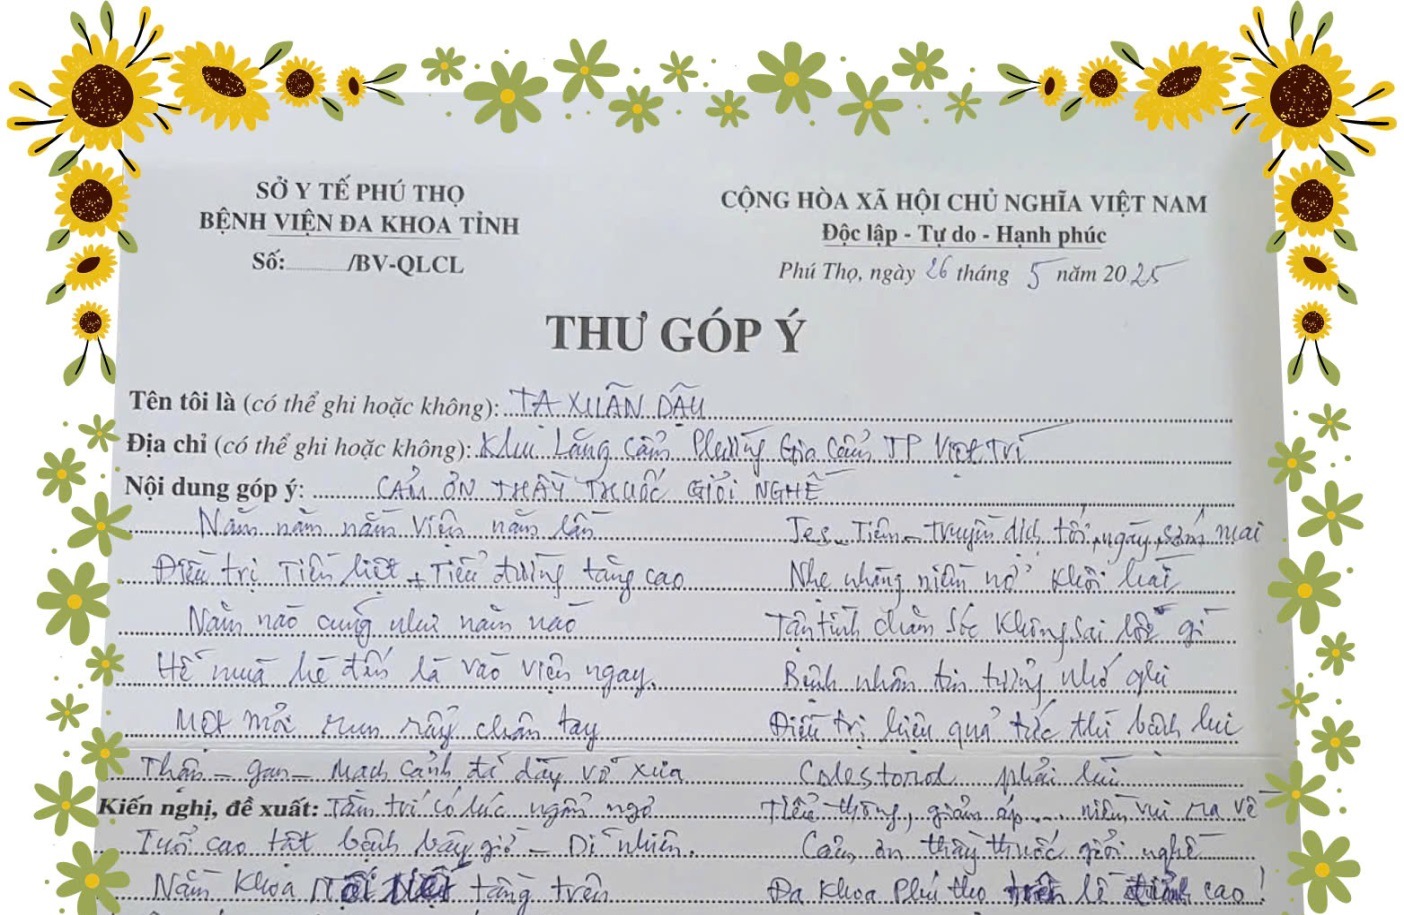 SỞ Y TẾ PHÚ THỌ
BỆNH VIỆN ĐA KHOA TỈNH
Số: /BV-QLCL
CỘNG HÒA XÃ HỘI CHỦ NGHĨA VIỆT NAM
Độc lập - Tự do - Hạnh phúc
Phú Thọ, ngày 26 tháng 5 năm 2025
THƯ GÓP Ý
Tên tôi là (có thể ghi hoặc không): TẠ XUÂN DẬU
Địa chỉ (có thể ghi hoặc không): Khu Lăng Cẩm Phường Gia Cẩm TP Việt Trì
Nội dung góp ý: CẢM ƠN THẦY THUỐC GIỎI NGHỀ
Năm năm nằm viện năm lần
Điều trị Tiền liệt + Tiểu đường tăng cao
Năm nào cũng như năm nào
Hễ mùa hè đến là vào viện ngay.
Mệt mỏi run rẩy chân tay
Thận - gan - Mạch cảnh đá dầy vỡ xưa
Kiến nghị, đề xuất: Tâm trí có lúc ngẩn ngơ
Tuổi cao tật bệnh bây giờ - Dĩ nhiên.
Nằm Khoa Nội tầng trên
Tes - Tiêm - truyền dịch tối, ngày, sớm mai
Nhẹ nhàng niềm nở khôi hài
Tận tình chăm sóc không sai lỗi gì
Bệnh nhân tin tưởng nhớ ghi
Điều trị hiệu quả tức thì bệnh lui
Colestorod phải lùi
Tiểu thông, giảm áp .... niềm vui ra về
Cảm ơn thầy thuốc giỏi nghề
Đa Khoa Phú thọ cao!